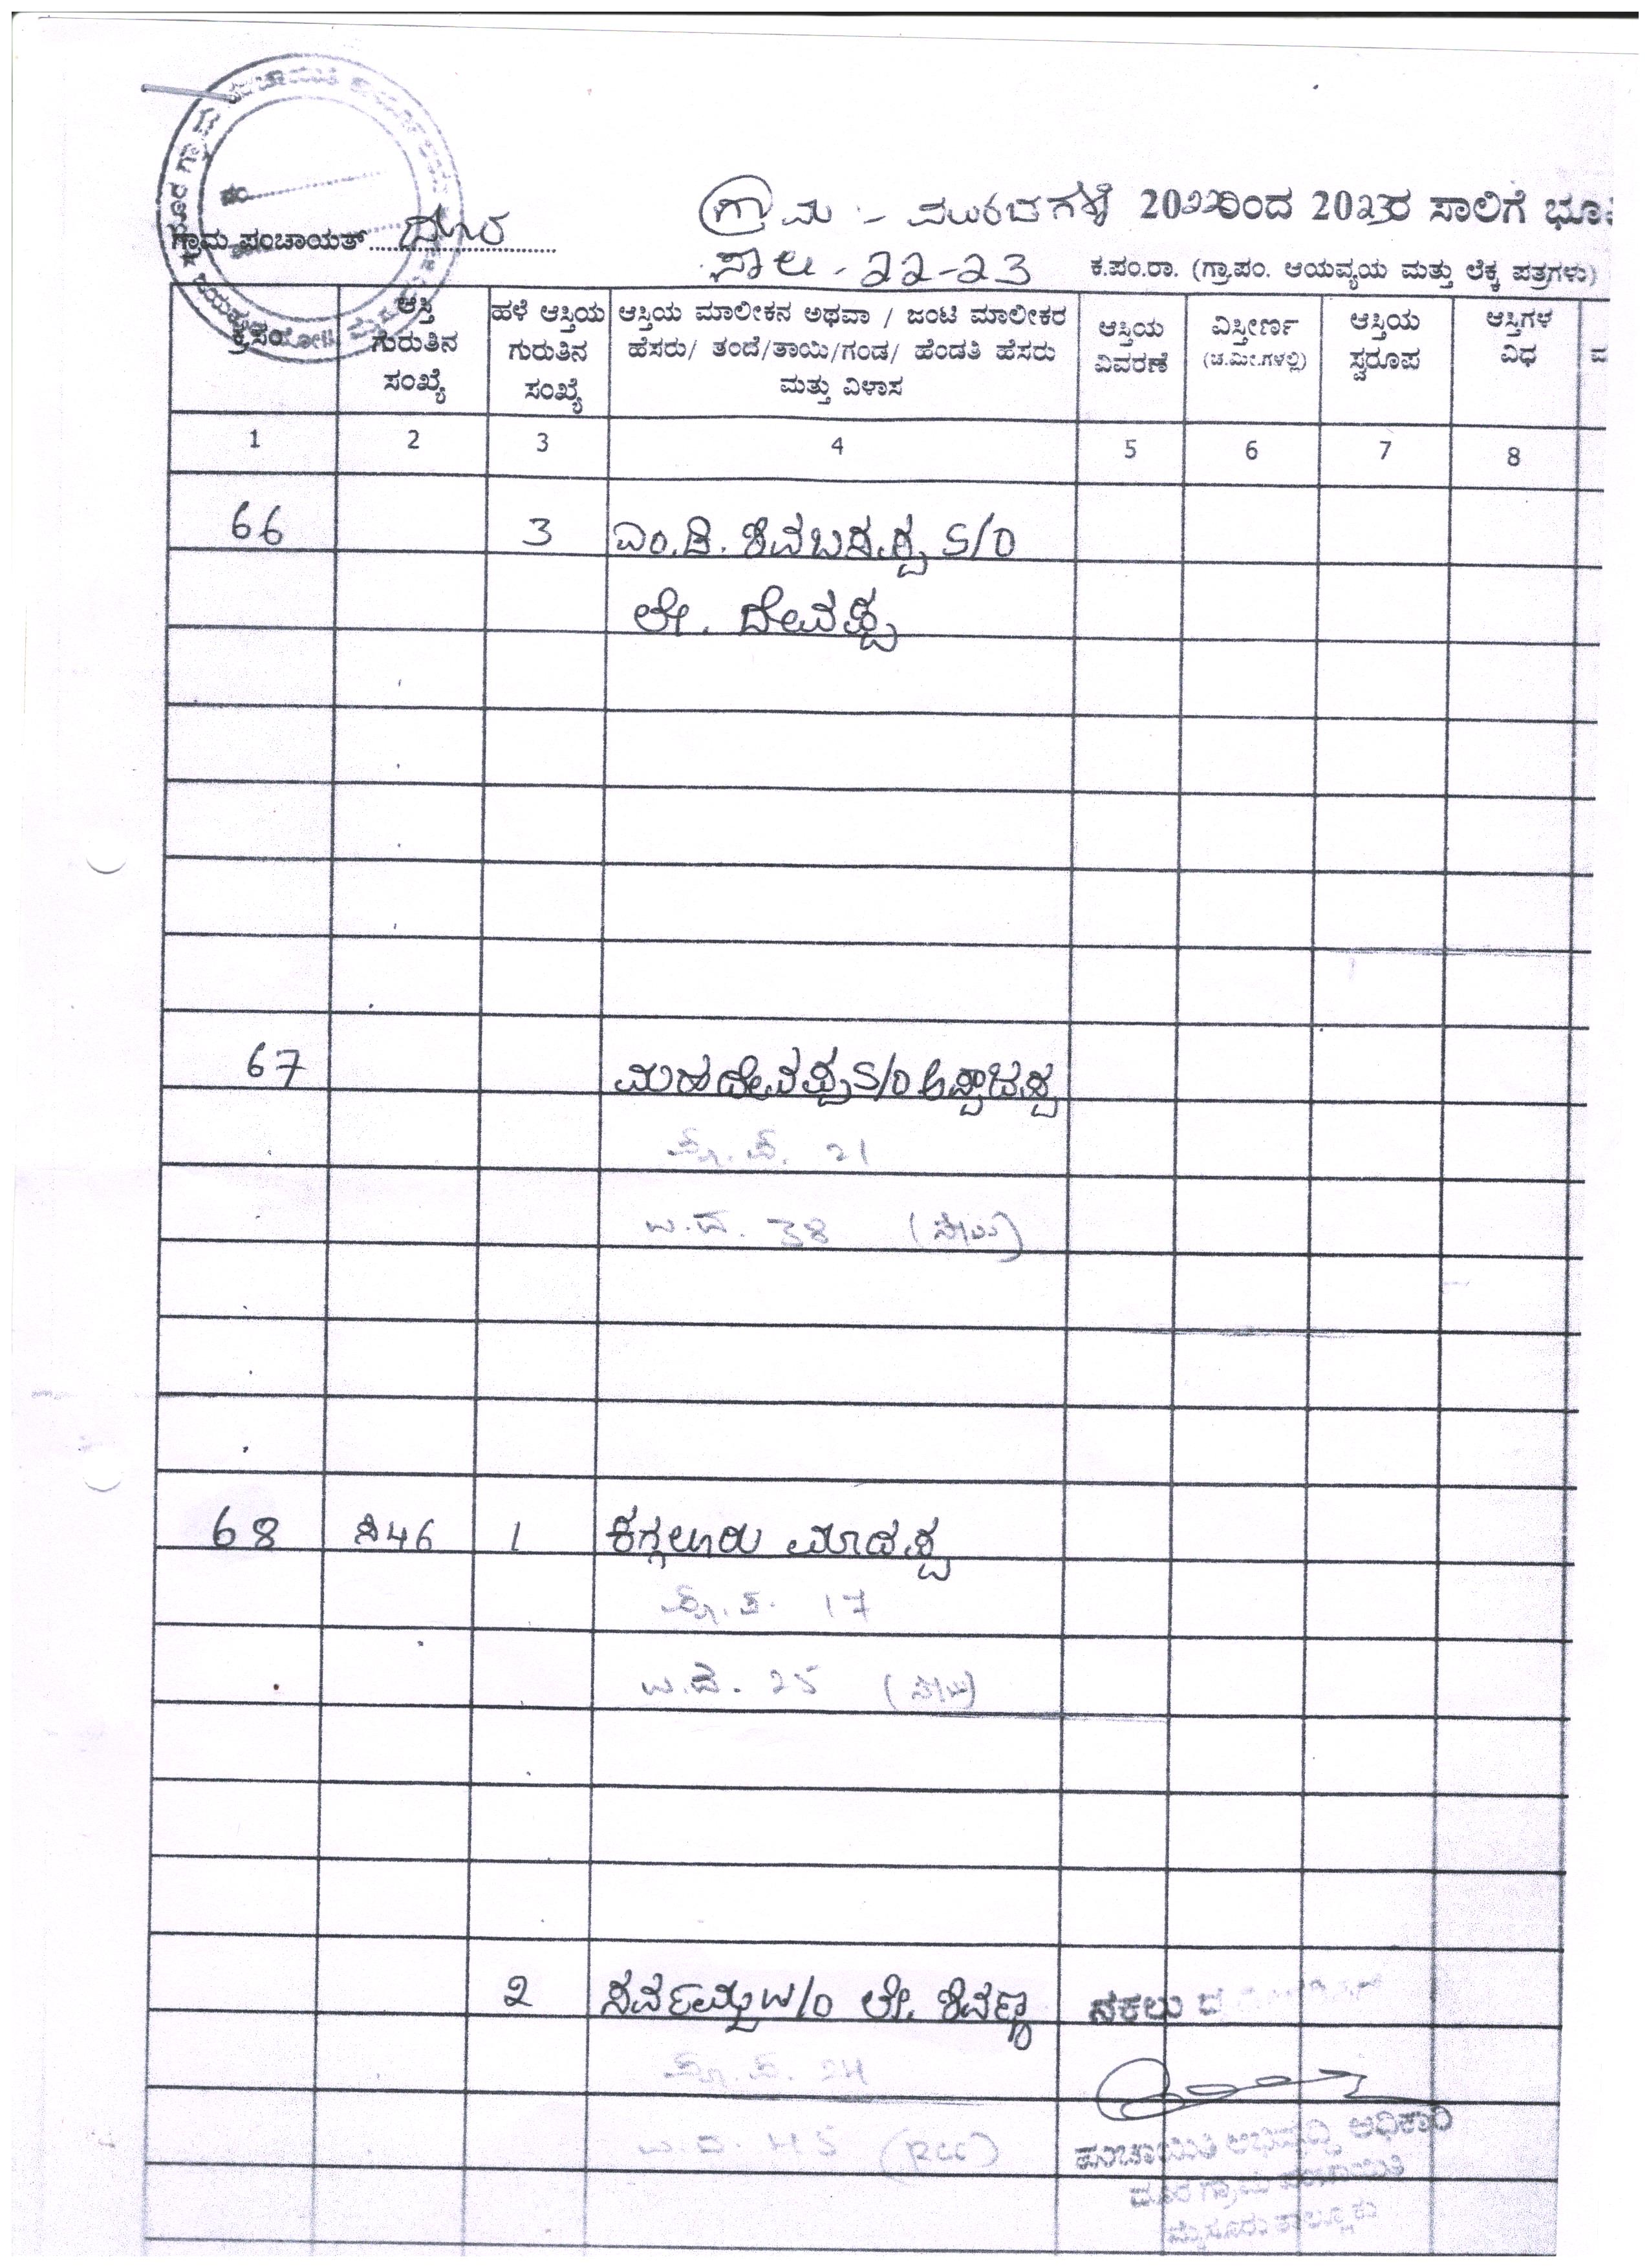 ಗ್ರಾಮ :- ಮುರಡಗಳ್ಳಿ 2022ರಿಂದ 2023ರ ಸಾಲಿಗೆ
ಗ್ರಾಮ ಪಂಚಾಯತ್ ದೂರ
ಸಾಲು - 22-23 ಕ.ಪಂ.ರಾ. (ಗ್ರಾ.ಪಂ. ಆಯವ್ಯಯ ಮತ್ತು ಲೆಕ್ಕ ಪತ್ರಗಳು)
ಕ್ರ.ಸಂ
ಆಸ್ತಿ
ಗುರುತಿನ
ಸಂಖ್ಯೆ
ಹಳೆ ಆಸ್ತಿಯ
ಗುರುತಿನ
ಸಂಖ್ಯೆ
ಆಸ್ತಿಯ ಮಾಲೀಕನ ಅಥವಾ / ಜಂಟಿ ಮಾಲೀಕರ
ಹೆಸರು/ ತಂದೆ/ತಾಯಿ/ಗಂಡ/ ಹೆಂಡತಿ ಹೆಸರು
ಮತ್ತು ವಿಳಾಸ
ಆಸ್ತಿಯ
ವಿವರಣೆ
ವಿಸ್ತೀರ್ಣ
(ಚ.ಮೀ.ಗಳಲ್ಲಿ)
ಆಸ್ತಿಯ
ಸ್ವರೂಪ
ಆಸ್ತಿಗಳ
ವಿಧ
1 2 3 4 5 6 7 8
66 3 ಎಂ.ಡಿ. ಶಿವಬಸಪ್ಪ S/O
ಲೇ. ದೇವಪ್ಪ
67 ಮಹದೇವಪ್ಪ S/O ಅಪ್ಪಾಜಪ್ಪ
21
38
68 ನಿ46 1 ಕಗ್ಗಲೂರು ಮಾದಪ್ಪ
17
25
2 ನಿರ್ವಾಣಮ್ಮ W/O ಲೇ. ಶಿವಣ್ಣ ನಕಲು
24
45 (RCC)
ಪಂಚಾಯಿತಿ ಅಭಿವೃದ್ಧಿ ಅಧಿಕಾರಿ
ದೂರ ಗ್ರಾಮ ಪಂಚಾಯಿತಿ
ಮೈಸೂರು ತಾಲ್ಲೂಕು